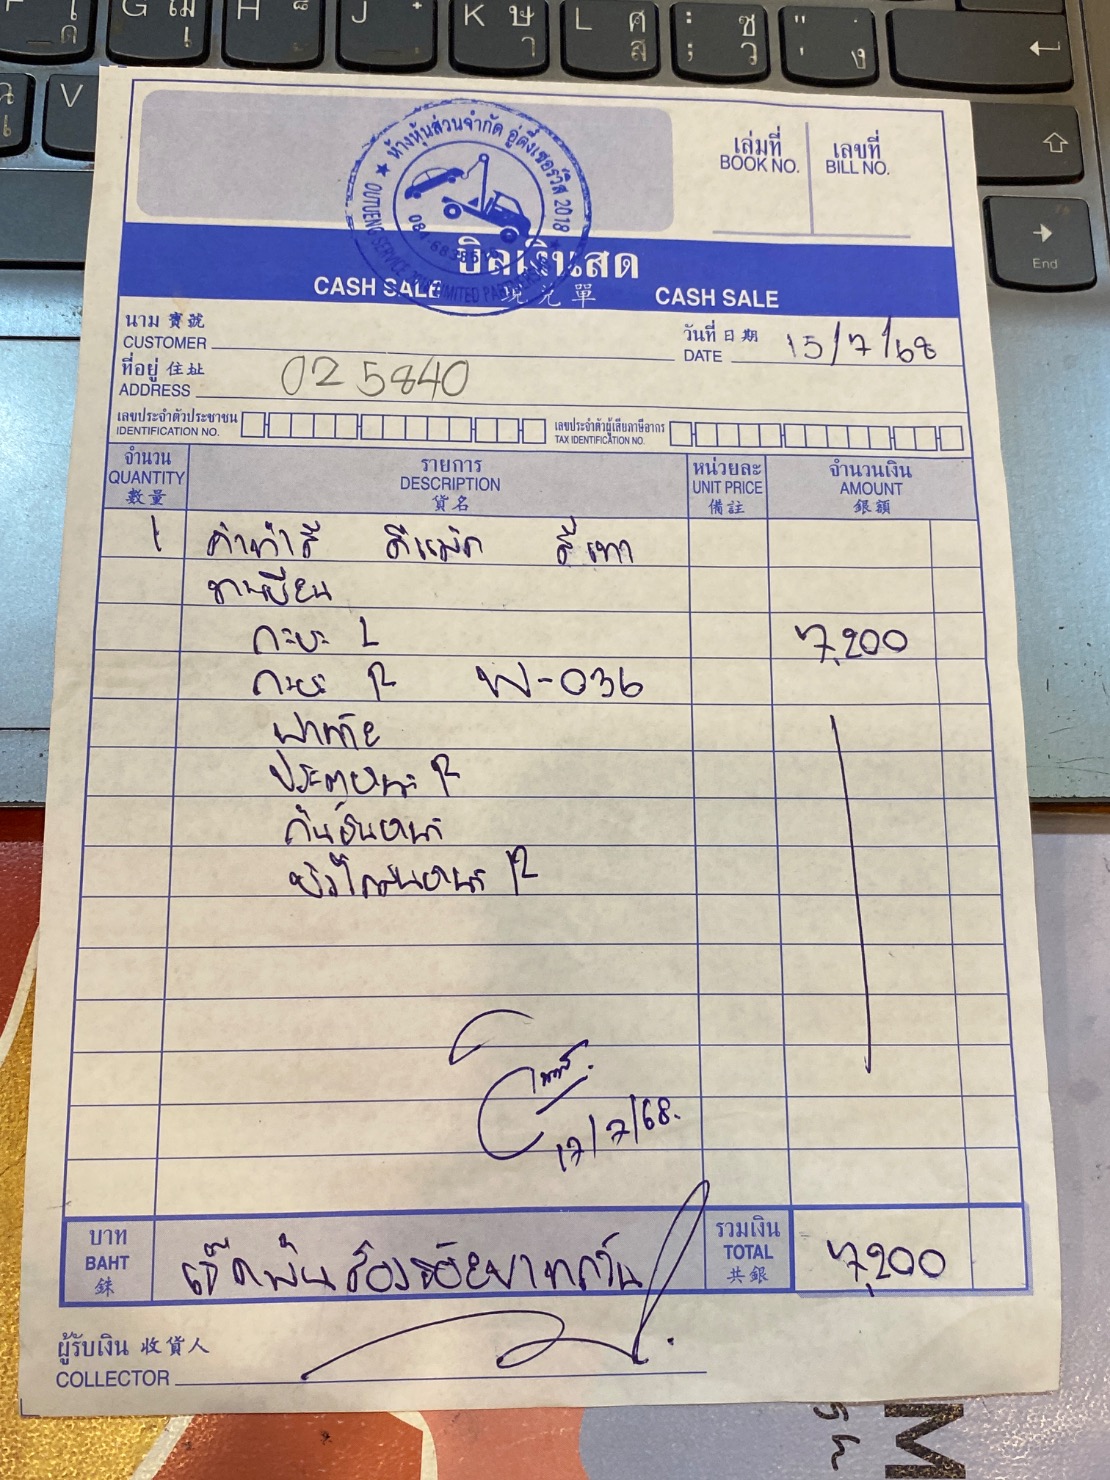 F
G เ
H
J
K ษ า
L ศ ส
: ซ
; ว
" .
' ง
V
End
ห้างหุ้นส่วนจำกัด อู่ตึ๋งเซอร์วิส 2018
เล่มที่ เลขที่
BOOK NO. BILL NO.
บิลเงินสด
CASH SALE 現兌單 CASH SALE
นาม 寶號
CUSTOMER
วันที่ 日期
DATE 15/7/68
ที่อยู่ 住址
ADDRESS 025840
เลขประจำตัวประชาชน
IDENTIFICATION NO.
เลขประจำตัวผู้เสียภาษีอากร
TAX IDENTIFICATION NO.
จำนวน รายการ หน่วยละ จำนวนเงิน
QUANTITY DESCRIPTION UNIT PRICE AMOUNT
數量 貨名 備註 銀額
1 ค่าทำสี ดีแม็ก สีเทา
ทะเบียน
กะบะ L 7,200
กะบะ R ฟฟ-036
ฝาท้าย
ประตูหน้า R
กันชนหน้า
หน้า R
17/7/68.
บาท
BAHT เจ็ดพันสองร้อยบาทถ้วน
銖
รวมเงิน
TOTAL 7,200
共銀
ผู้รับเงิน 收貨人
COLLECTOR
M